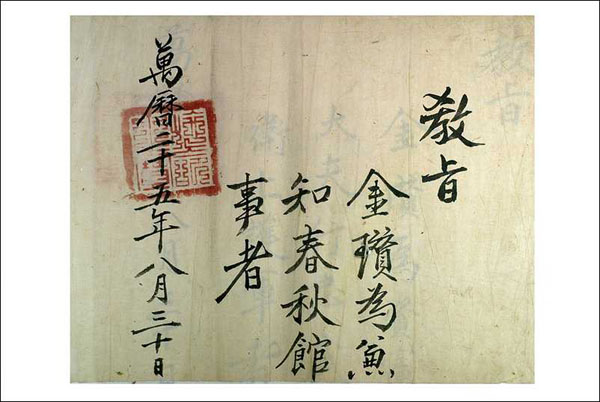 敎旨
金瓚為兼
知春秋館
事者
萬曆二十五年八月三十日